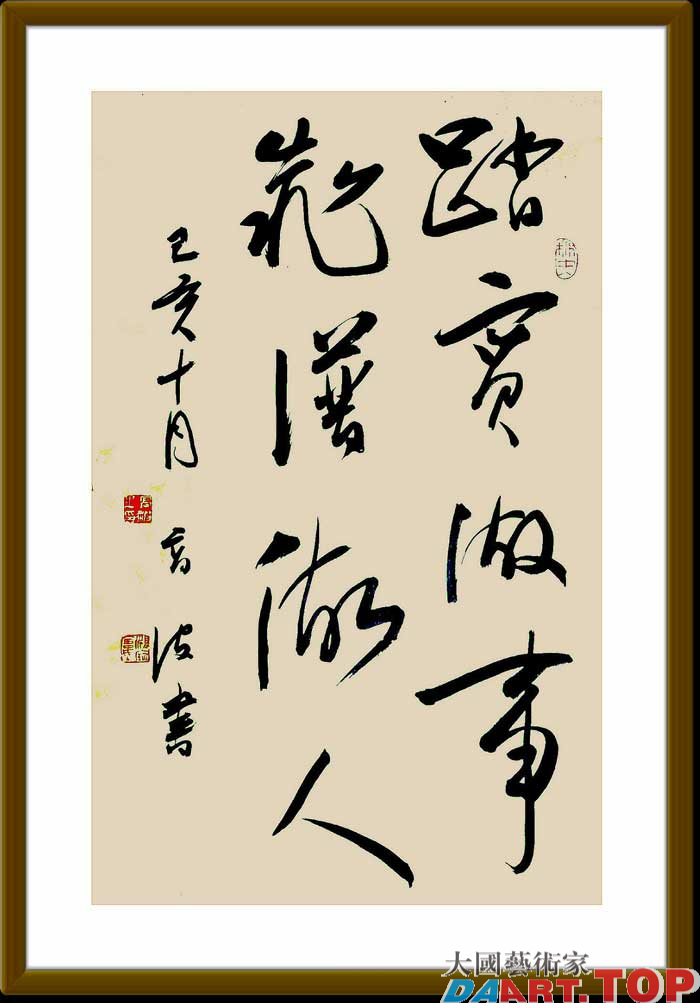 踏實做事
靠譜做人
己亥十月
波書
大國藝術家
DAART.TOP